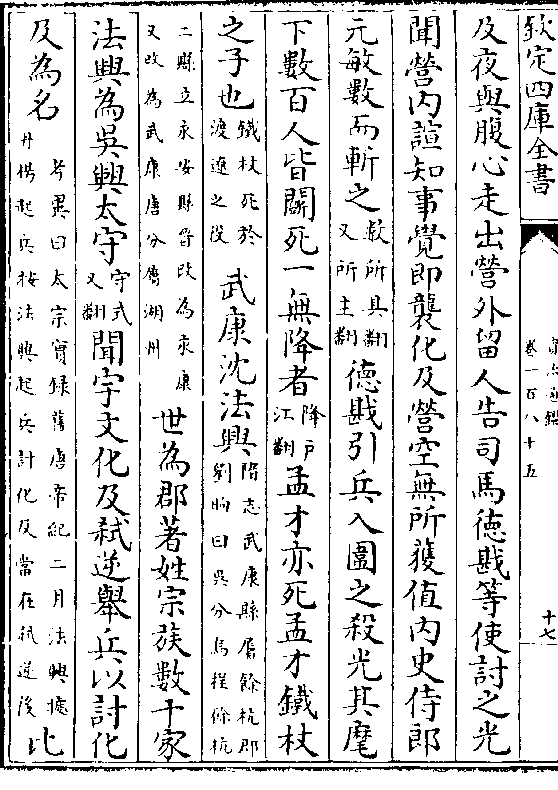 欽定四庫全書
卷一百八十五
十七
及夜與腹心走出營外留人告司馬德戡等使討之光
聞營内諠知事覺即襲化及營空無所獲值内史侍郎
元敏數而斬之數所具翻又所主翻德戡引兵入圍之殺光其麾
下數百人皆鬭死一無降者降戸江翻孟才亦死孟才鐵杖
之子也鐵杖死於渡遼之役 武康沈法興隋志武康縣屬餘杭郡劉昫曰吳分烏程餘杭
二縣立永安縣晉改為永康又改為武康唐分屬湖州世為郡著姓宗族數千家
法興為吳興太守守式又翻聞宇文化及弑逆舉兵以討化
及為名考異曰太宗實録舊唐帝紀二月法興據丹楊起兵按法興起兵討化及當在弑逆後比